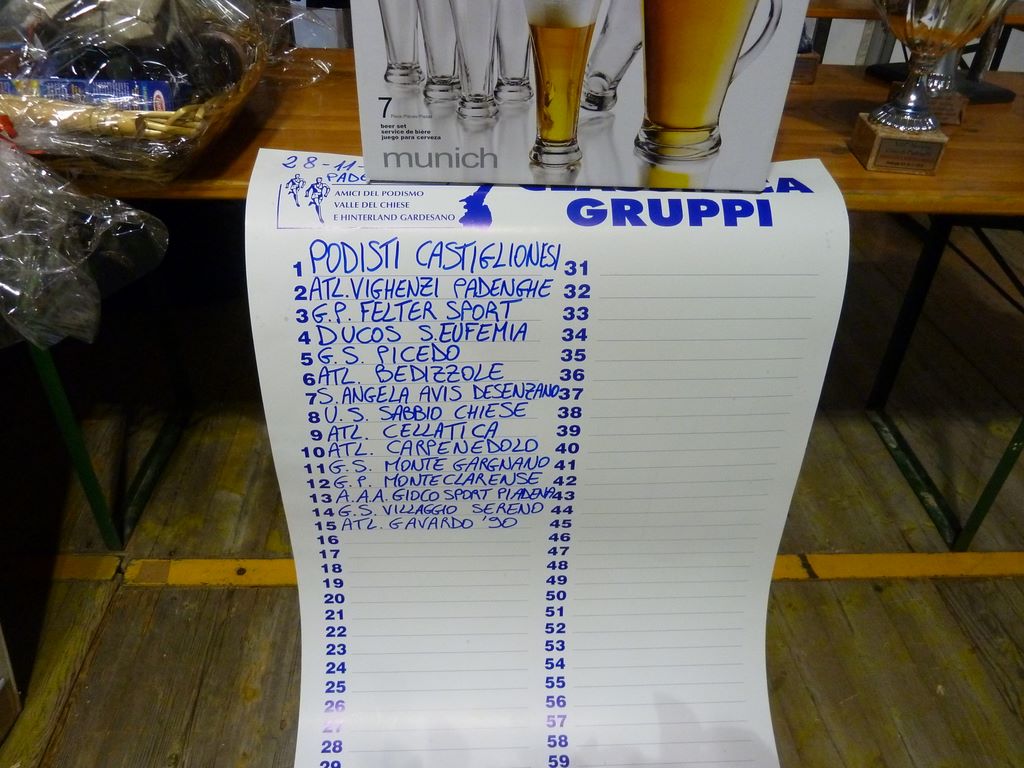 7
beer set
service de bière
juego para cerveza
munich
28-11-
AMICI DEL PODISMO
VALLE DEL CHIESE
E HINTERLAND GARDESANO
GRUPPI
1 PODISTI CASTIGLIONESI
2 ATL. VIGHENZI PADENGHE
3 G.P. FELTER SPORT
4 DUCOS S. EUFEMIA
5 G.S. PICEDO
6 ATL. BEDIZZOLE
7 S. ANGELA AVIS DESENZANO
8 U.S. SABBIO CHIESE
9 ATL. CELLATICA
10 ATL. CARPENEDOLO
11 G.S. MONTE GARGNANO
12 G.P. MONTECLARENSE
13 A.A.A. GIOCO SPORT PIADENA
14 G.S. VILLAGGIO SERENO
15 ATL. GAVARDO '90
16
17
18
19
20
21
22
23
24
25
26
27
28
29
31
32
33
34
35
36
37
38
39
40
41
42
43
44
45
46
47
48
49
50
51
52
53
54
55
56
57
58
59